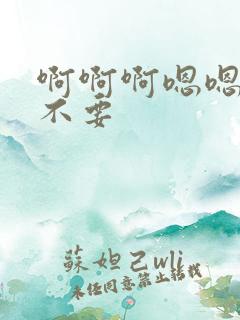 啊啊啊嗯嗯
不要
蘇妲己wli
未经同意禁止转载